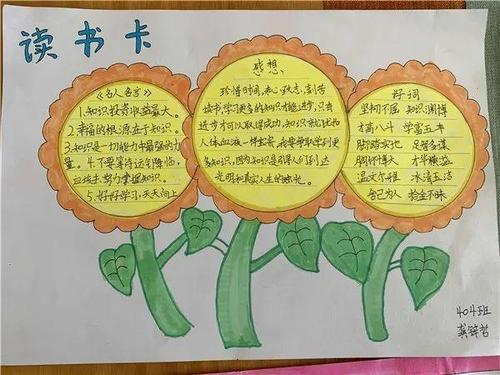 读书卡
《名人名言》
1.知识投资收益最大。
2.幸福的根源在于知识。
3.知识是一切能力中最强的力
量。4.不要等待运气降临,
应该去努力掌握知识。
5.好好学习,天天向上
感想
珍惜时间,
读书,学习更多的知识才能进步,只有
进步才可以取得成功,知识就犹如
人体血液一样宝贵,我要争取学到更
多知识,因为知识是引导人们到达
光明和真实人生的烛光。
好词
坚韧不屈 知识渊博
才高八斗 学富五车
脚踏实地 足智多谋
胸怀博大 才华横溢
温文尔雅 冰清玉洁
舍己为人 拾金不昧
404班
龚